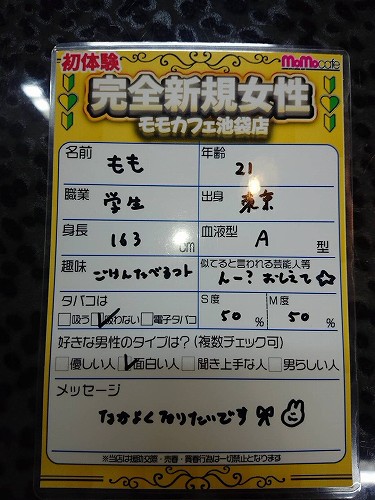 初体験
MoMocafe
完全新規女性
モモカフェ池袋店
名前 もも 年齢 21
職業 学生 出身 東京
身長 163 cm 血液型 A 型
趣味 ごはんたべるコト 似てると言われる芸能人等 んー?おしえて☆
タバコは S度 M度
□吸う ☑吸わない □電子タバコ 50 % 50 %
好きな男性のタイプは?(複数チェック可)
□優しい人 ☑面白い人 □聞き上手な人 □男らしい人
メッセージ
なかよくなりたいです
※当店は援助交際・売春・買春行為は一切禁止となります